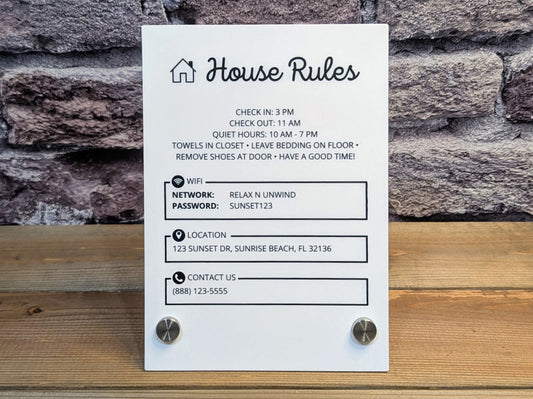 House Rules
CHECK IN: 3 PM
CHECK OUT: 11 AM
QUIET HOURS: 10 AM - 7 PM
TOWELS IN CLOSET • LEAVE BEDDING ON FLOOR •
REMOVE SHOES AT DOOR • HAVE A GOOD TIME!
WIFI
NETWORK: RELAX N UNWIND
PASSWORD: SUNSET123
LOCATION
123 SUNSET DR, SUNRISE BEACH, FL 32136
CONTACT US
(888) 123-5555